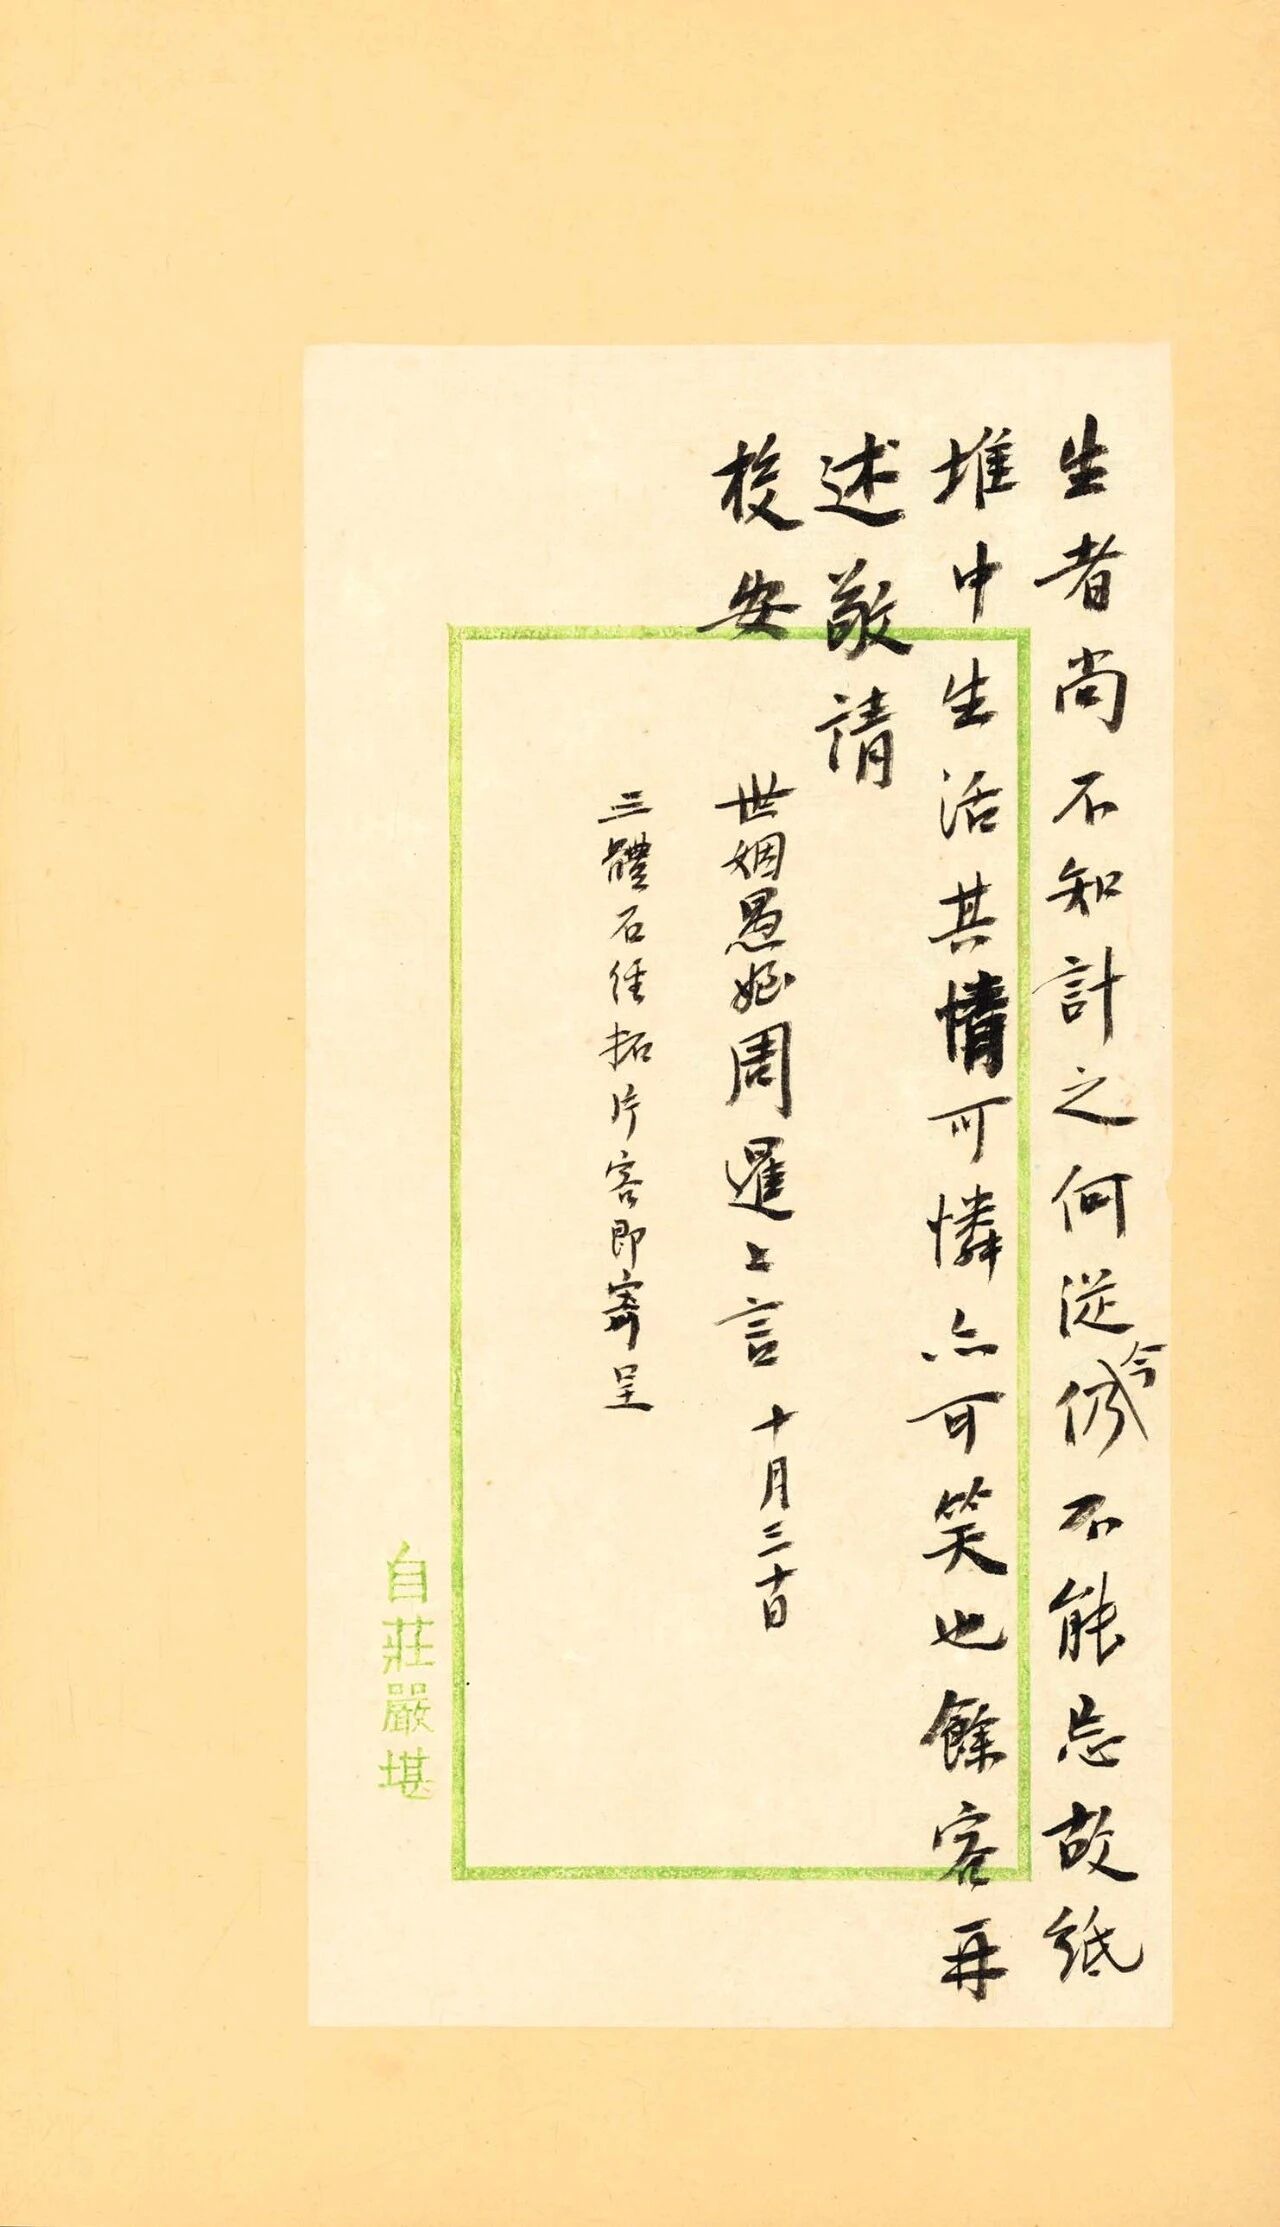 生者尚不知計之何從今仍不能忘故紙
堆中生活其情可憐亦可笑也餘容再
述敬請
校安
世姻愚姪周暹上言 十月三十日
三體石經拓片容即寄呈
自莊嚴堪